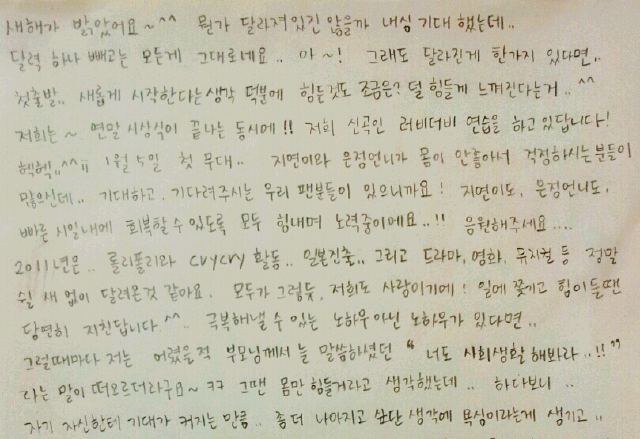 새해가 밝았어요~^^ 뭔가 달라져있긴 않을까 내심 기대했는데..
달력 하나 빼고는 모든게 그대로네요.. 아~! 그래도 달라진게 한가지 있다면..
첫출발.. 새롭게 시작한다는생각 덕분에 힘든것도 조금은? 덜 힘들게 느껴진다는거..^^
저희는~ 연말 시상식이 끝나는 동시에!! 저희 신곡인 러비더비 연습을 하고있답니다!
헥헥..^^;; 1월 5일 첫 무대.. 지연이와 은정언니가 몸이 안좋아서 걱정하시는분들이
많으신데.. 기대하고, 기다려주시는 우리 팬분들이 있으니까요! 지연이도, 은정언니도,
빠른 시일내에 회복할 수 있도록 모두 힘내며 노력중이에요..!! 응원해주세요....
2011년은.. 롤리폴리와 cry cry 활동.. 일본진출.. 그리고 드라마, 영화, 뮤지컬 등 정말
쉴 새 없이 달려온것 같아요. 모두가 그렇듯, 저희도 사람이기에! 일에 쫓기고 힘이들땐
당연히 지친답니다.^^.. 극복해낼 수 있는 노하우 아닌 노하우가 있다면..
그럴때마다 저는 어렸을적 부모님께서 늘 말씀하셨던 " 너도 사회생활 해봐라..!! "
라는 말이 떠오르더라구요~ㅋㅋ 그땐 몸만 힘들거라고 생각했는데.. 하다보니..
자기 자신한테 기대가 커지는 만큼.. 좀 더 나아지고 싶단 생각에 욕심이라는게 생기고..